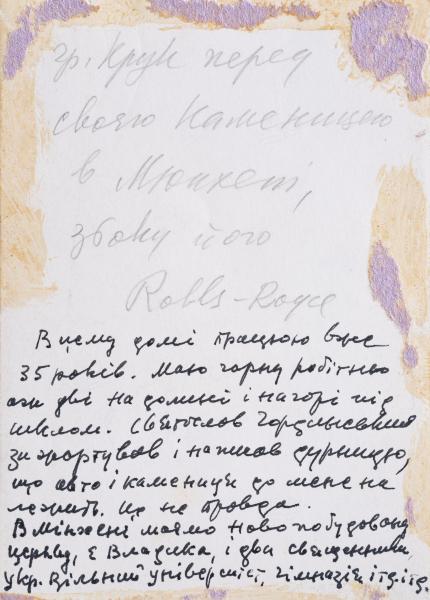 гр. Крук перед
своєю Каменицею
в Мюнхені,
збоку його
Rolls-Royce
В цему домі працюю вже
35 років. Маю гарну робітню
аж дві на долині і на горі під
шклом. Святослав Гординський
зажартував і написав дурницю,
що авто і камениця до мене на
лежить. Це не правда.
В Мінхені маємо ново побудовану
церкву, є Владика, і два священники,
укр. вільний університ, гімназія і т.д. і т.д.